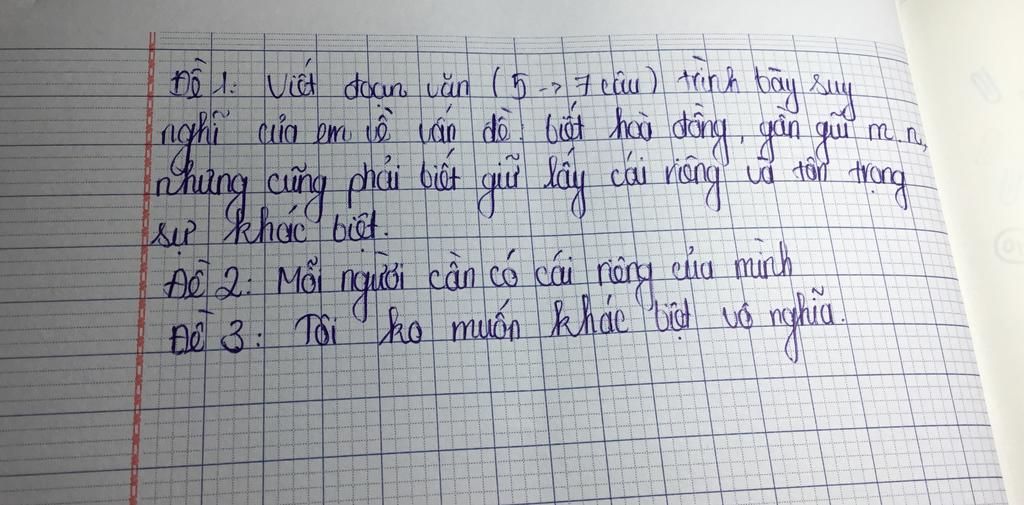 Đề 1: Viết đoạn văn (5 -> 7 câu) trình bày suy
nghĩ của em về vấn đề: biết hoà đồng, gần gũi m.n,
nhưng cũng phải biết giữ lấy cái riêng và tôn trọng
sự khác biệt.
Đề 2: Mỗi người cần có cái riêng của mình
Đề 3: Tôi ko muốn khác biệt vô nghĩa.